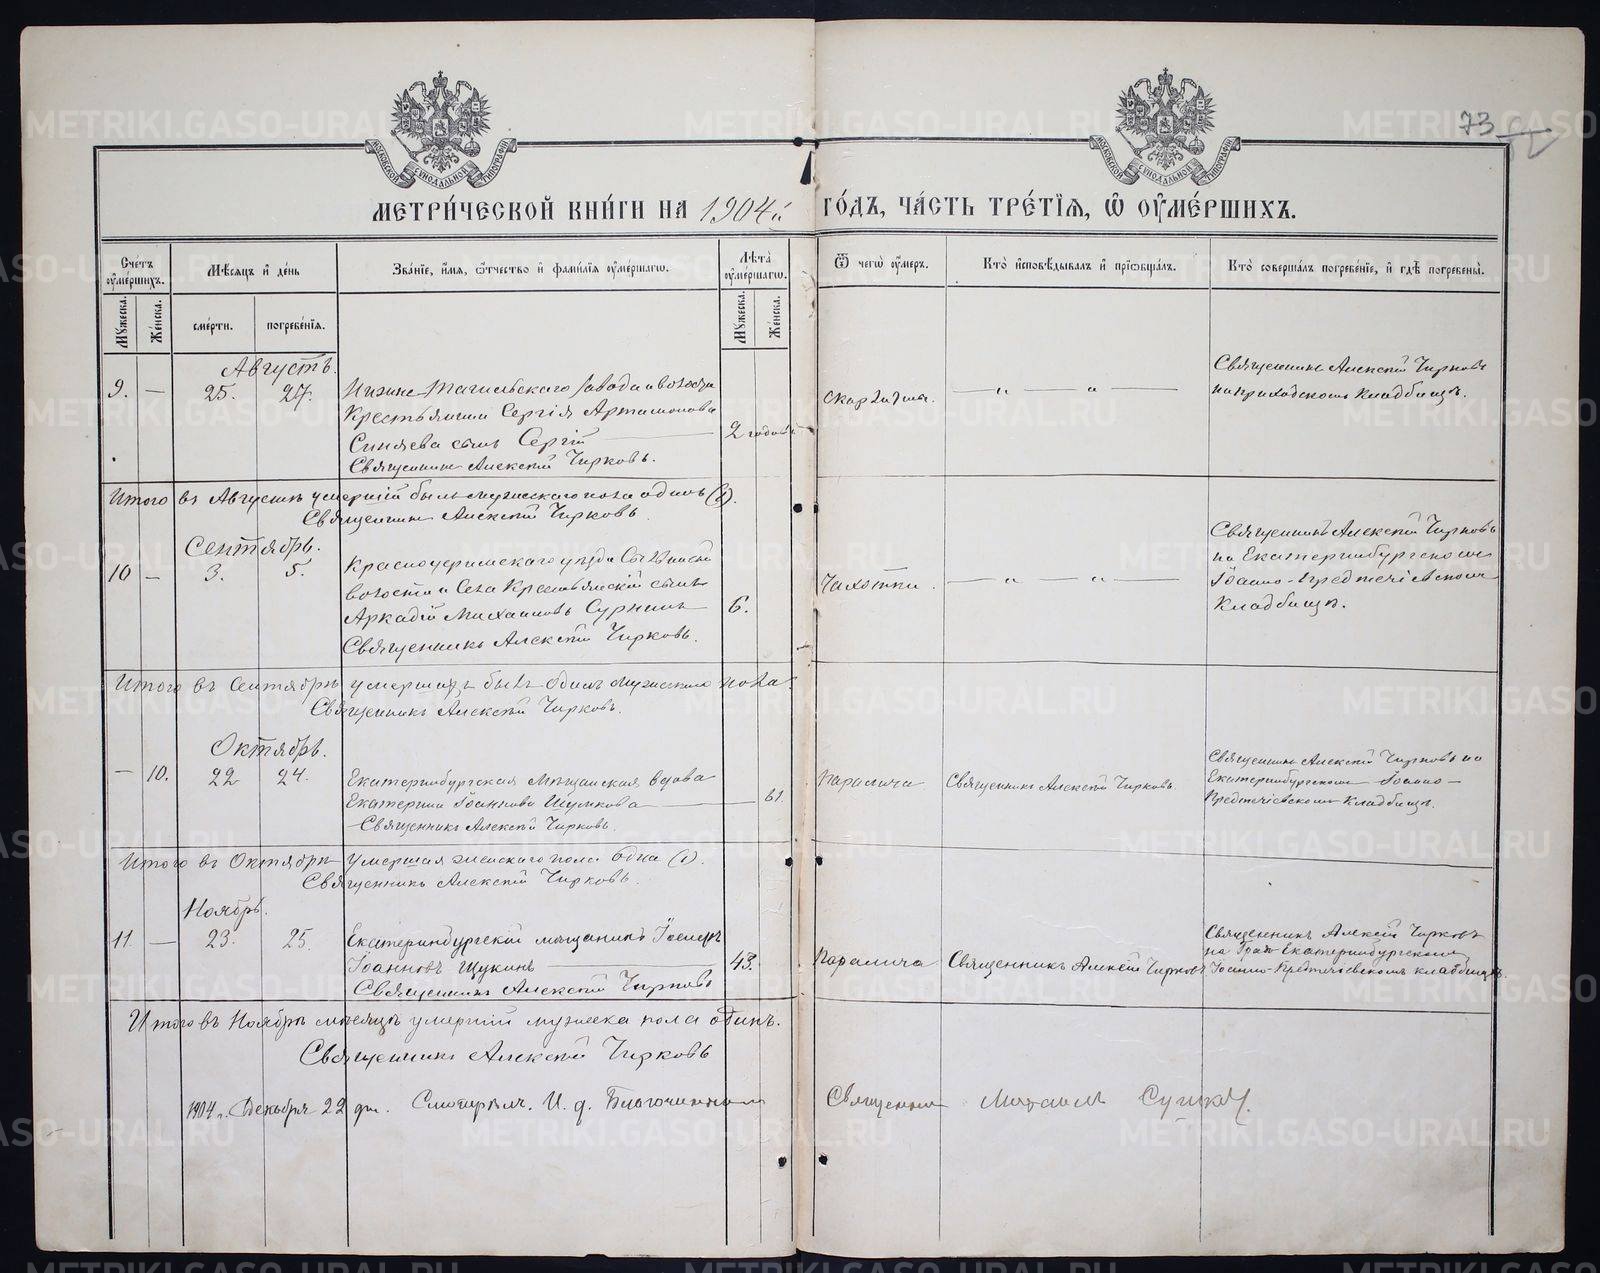 МЕТРИ́ЧЕСКОЙ КНИ́ГИ НА 1904й ГО́ДЪ, ЧА́СТЬ ТРЕ́ТІѦ, Ѿ ОУ҆МЕ́РШИХЪ.
73
МОСКОВСКОЙ СѴНОДАЛЬНОЙ ТИПОГРАФІИ
МОСКОВСКОЙ СѴНОДАЛЬНОЙ ТИПОГРАФІИ
Сче́тъ оу҆ме́ршихъ.
Мѣ́сяцъ и҆ де́нь
Зва́нїе, и҆́мя, ѻ҆́тчество и҆ фами́лїя оу҆ме́ршагѡ.
Лѣ́та оу҆ме́ршагѡ.
Ѿ чегѡ̀ оу҆́меръ.
Кто̀ и҆сповѣ́дывалъ и҆ прїѡбща́лъ.
Кто̀ соверша́лъ погребе́нїе, и҆ гдѣ̀ погребены̀.
Му́жеска.
Же́нска.
сме́рти.
погребе́нїя.
Му́жеска.
Же́нска.
Августъ.
9. — 25. 27. Нижне Тагильскаго завода и волости
Крестьянина Сергія Артамонова
Синяева сынъ Сергій 2 годовъ
Священникъ Алексій Чирковъ.
скарлатина.
— " — " —
Священникъ Алексій Чирковъ
на приходскомъ кладбищѣ.
Итого въ Августѣ умершій былъ мужескаго пола одинъ (1).
Священникъ Алексій Чирковъ
Сентябрь.
10 — 3. 5. Красноуфимскаго уѣзда
волости и села Крестьянскій сынъ
Аркадій Михаиловъ Сурнинъ 6.
Священникъ Алексій Чирковъ.
Чахотки.
— " — " —
Священникъ Алексій Чирковъ
на Екатеринбургскомъ
Іоанно-Предтечіевскомъ
кладбищѣ.
Итого въ Сентябрѣ умершихъ былъ одинъ мужескаго пола.
Священникъ Алексій Чирковъ.
Октябрь.
— 10. 22 24. Екатеринбургская мѣщанская вдова
Екатерина Іоаннова 61
Священникъ Алексій Чирковъ.
Паралича
Священникъ Алексій Чирковъ.
Священникъ Алексій Чирковъ на
Екатеринбургскомъ Іоанно-
Предтечіевскомъ кладбищѣ.
Итого въ Октябрѣ умершая женскаго пола одна (1).
Священникъ Алексій Чирковъ.
Ноябрь.
11 — 23. 25. Екатеринбургскій мѣщанинъ Іосифъ
Іоанновъ Щукинъ 43.
Священникъ Алексій Чирковъ
Паралича
Священникъ Алексій Чирковъ
Священникъ Алексій Чирковъ
на Град. Екатеринбургскомъ
Іоанно-Предтечіевскомъ кладбищѣ.
Итого въ Ноябрѣ мѣсяцѣ умершій мужеска пола одинъ.
Священникъ Алексій Чирковъ
1904 г. Декабря 22 дня. Смотрѣлъ. И. д. Благочиннаго Священникъ Михаилъ
METRIKI.GASO-URAL.RU